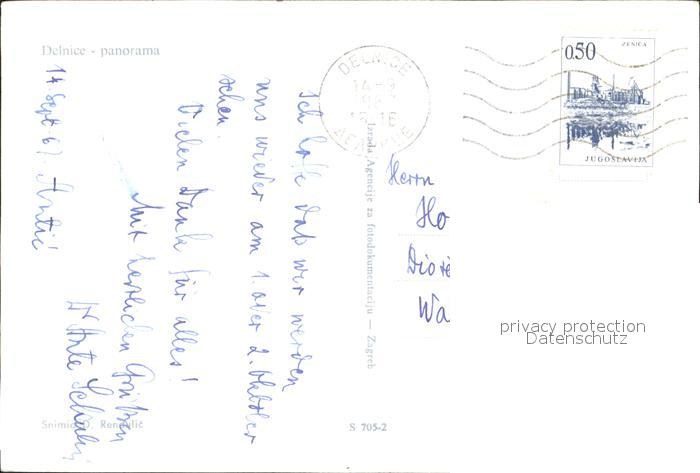 Delnice - panorama
Ich hoffe daß wir werden
uns wieder am 1. oder 2. Oktober
sehen.
Vielen Dank für alles!
Mit herzlichen Grüßen
14 Sept 67.
Snimio D. Rendulić
S 705-2
Izrada Agencije za fotodokumentaciju — Zagreb
DELNICE
0.50
ZENICA
JUGOSLAVIJA
Herrn
Ho
Wa
privacy protection
Datenschutz